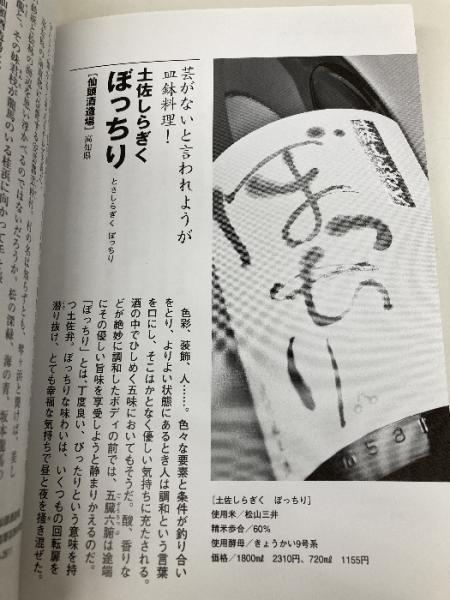 芸がないと言われようが
皿鉢料理!
土佐しらぎく
ぼっちり
とさしらぎく ぼっちり
[仙頭酒造場]高知県
色彩、装飾、人……。色々な要素と条件が釣り合い
をとり、よりよい状態にあるとき人は調和という言葉
を口にし、そこはかとなく優しい気持ちに充たされる。
酒の中でひしめく五味においてもそうだ。酸、香りな
どが絶妙に調和したボディの前では、五臓六腑は途端
にその優しい旨味を享受しようと静まりかえるのだ。
「ぼっちり」とは、丁度良い、ぴったりという意味を持
つ土佐弁。ぼっちりな味わいは、いくつもの回転扉を
潜り抜け、とても幸福な気持ちで昼と夜を掻き混ぜた。
ぼっちり
[土佐しらぎく ぼっちり]
使用米/松山三井
精米歩合/60%
使用酵母/きょうかい9号系
価格/1800㎖ 2310円、720㎖ 1155円